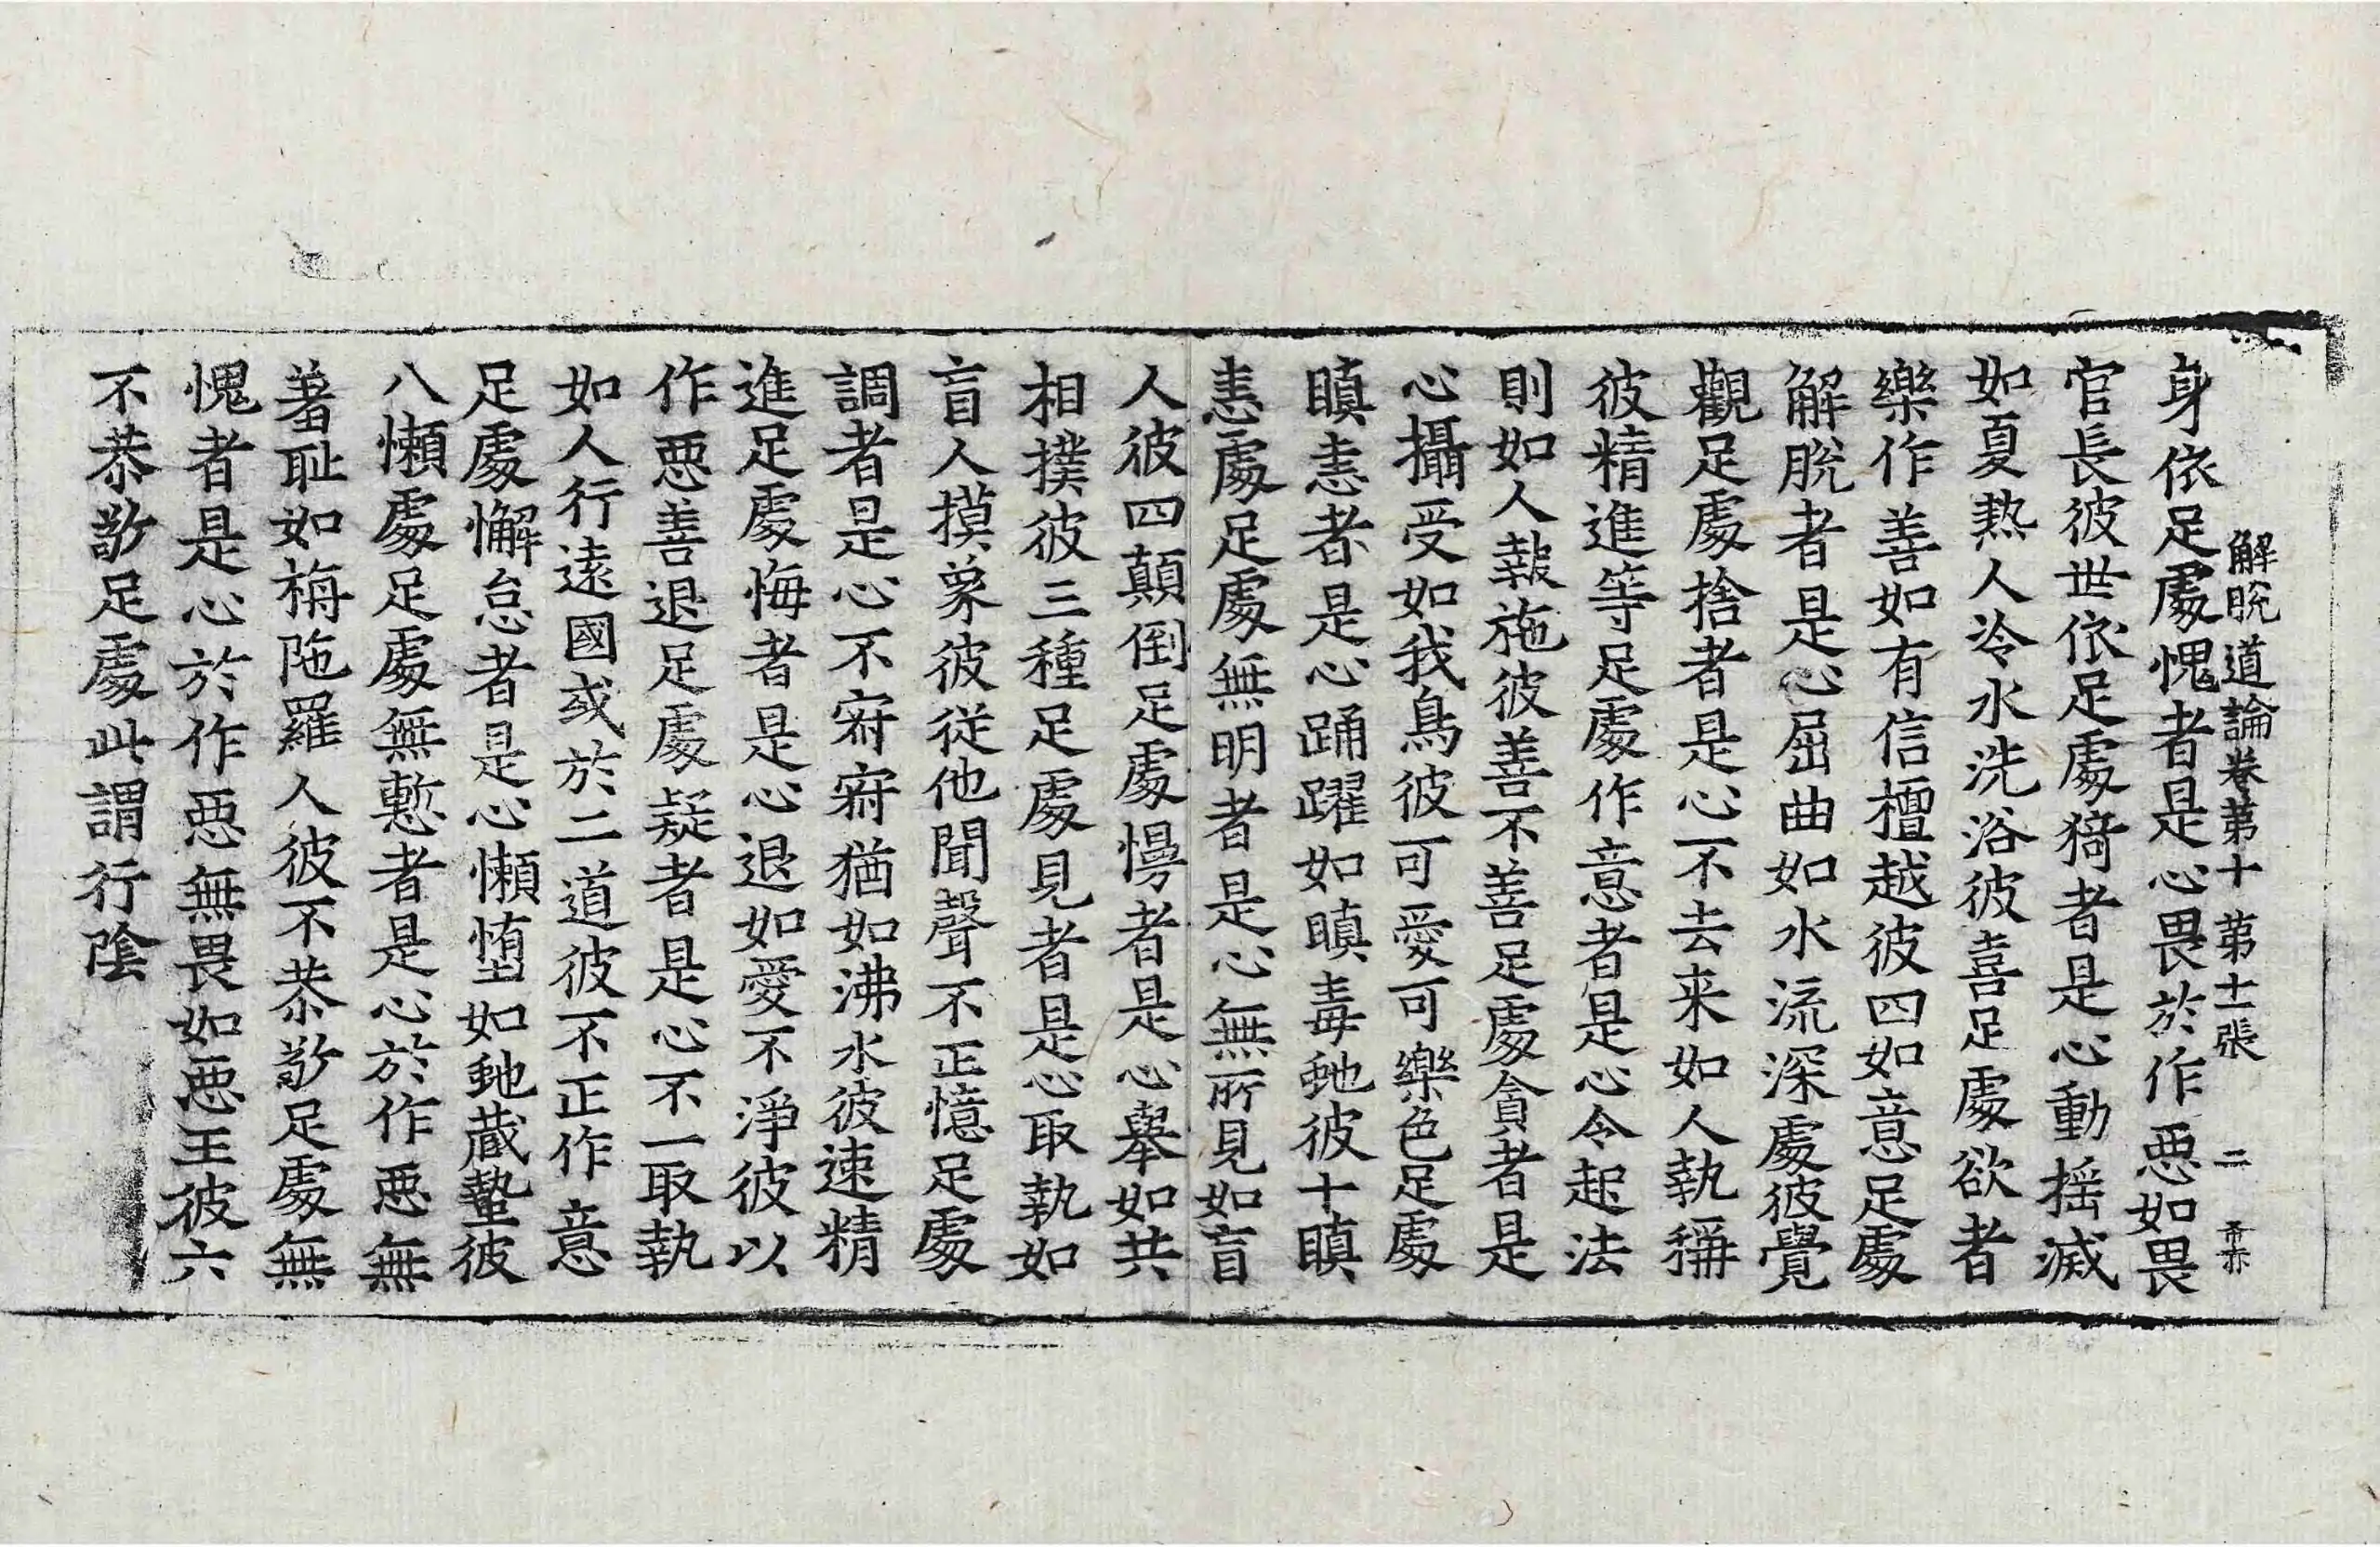 解脫道論卷第十 第十一張 二 甭亦
身依足處愧者是心畏於作惡如畏
官長彼世依足處猗者是心動揺滅
如夏熱人冷水洗浴彼喜足處欲者
樂作善如有信檀越彼四如意足處
解脫者是心屈曲如水流深處彼覺
觀足處捨者是心不去来如人執稱
彼精進等足處作意者是心令起法
則如人報施彼善不善足處貪者是
心攝受如我鳥彼可愛可樂色足處
瞋恚者是心踊躍如瞋毒虵彼十瞋
恚處足處無明者是心無所見如盲
人彼四顛倒足處慢者是心舉如共
相撲彼三種足處見者是心取執如
盲人摸象彼従他聞聲不正憶足處
調者是心不寂寂猶如沸水彼速精
進足處悔者是心退如愛不淨彼以
作惡善退足處疑者是心不一取執
如人行遠國或於二道彼不正作意
足處懈怠者是心懶堕如虵蔵蟄彼
八懶處足處無慙者是心於作惡無
羞耻如栴陁羅人彼不恭敬足處無
愧者是心於作惡無畏如惡王彼六
不恭敬足處此謂行陰